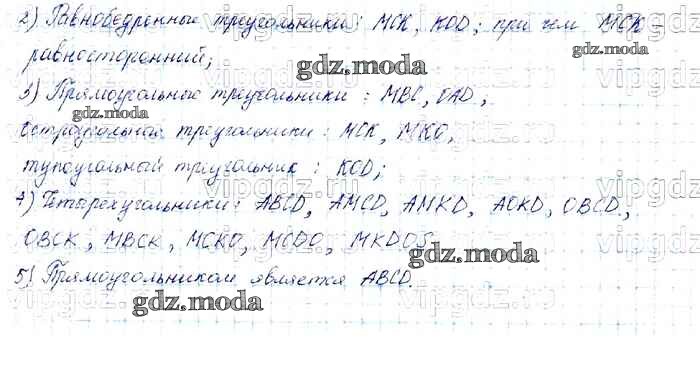 2) Равнобедренные треугольники: MCK, KOD; при чём MCK
равносторонний;
gdz.moda
gdz.moda
3) Прямоугольные треугольники: MBC, OAD;
gdz.moda
Остроугольные треугольники: MCK, MKO,
тупоугольный треугольник: KOD;
4) Четырёхугольники: ABCD, AMCD, AMKD, AOKD, OBCD,
OBCK, MBCK, MCKO, MCDO, MKDO;
gdz.moda
5) Прямоугольником является ABCD.
gdz.moda